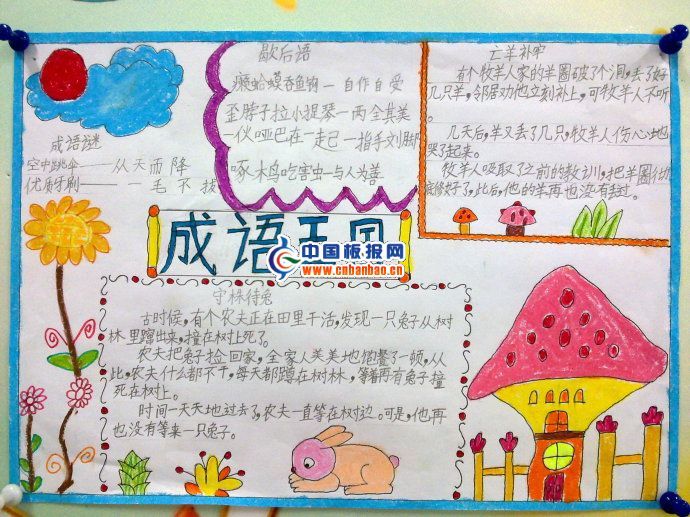 歇后语
癞蛤蟆吞鱼钩—自作自受
歪脖子拉小提琴—两全其美
一伙哑巴在一起—指手划脚
啄木鸟吃害虫—与人为善
亡羊补牢
有个牧羊人家的羊圈破了个洞,丢了好
几只羊,邻居劝他立刻补上,可牧羊人不听
。
几天后,羊又丢了几只,牧羊人伤心地
哭了起来。
牧羊人吸取了之前的教训,把羊圈
修好了,此后,他的羊再也没有丢过。
成语谜
空中跳伞——从天而降
优质牙刷——一毛不拔
成语王国
中国板报网
www.cnbanbao.cn
守株待兔
古时候,有个农夫正在田里干活,发现一只兔子从树
林里蹿出来,撞在树上死了。
农夫把兔子捡回家,全家人美美地饱餐了一顿,从
此,农夫什么都不干,每天都蹲在树林,等着再有兔子撞
死在树上。
时间一天天地过去了,农夫一直等在树边。可是,他再
也没有等来一只兔子。